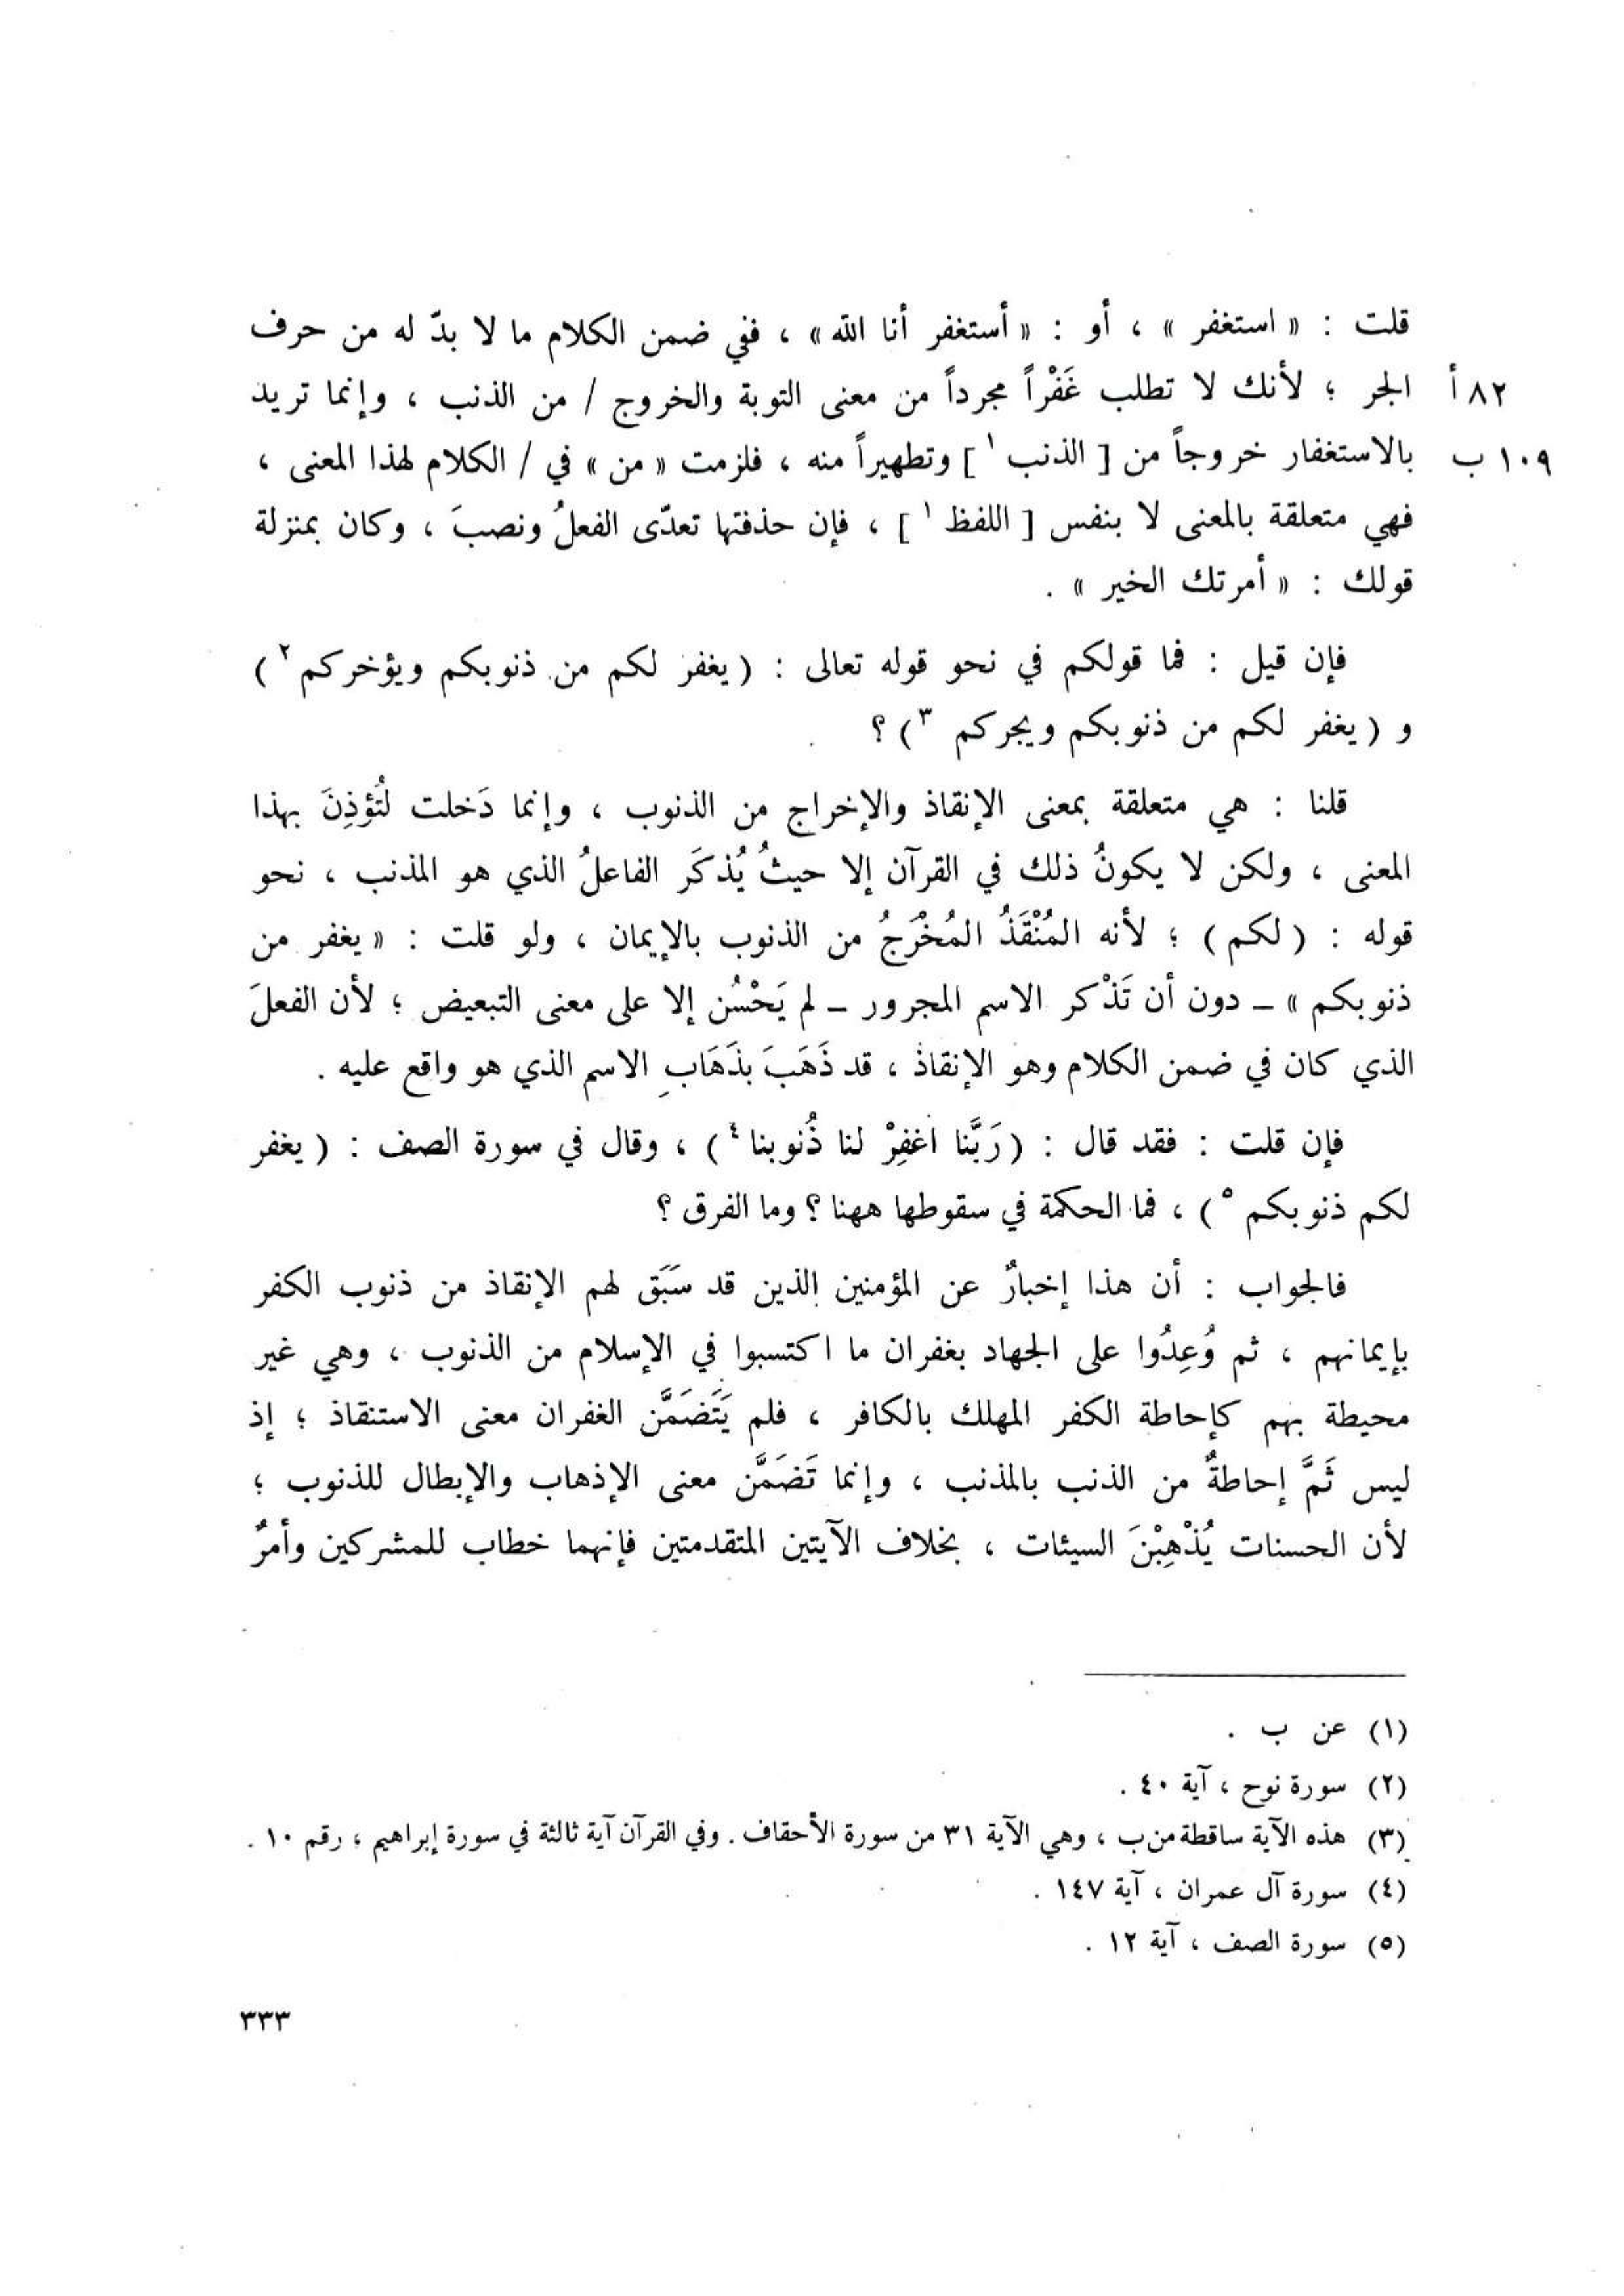 قلت : « استغفر » ، أو : « أستغفر أنا الله » ، ففي ضمن الكلام ما لا بدّ له من حرف
٨٢ أ الجر ؛ لأنك لا تطلب غَفْراً مجرداً من معنى التوبة والخروج / من الذنب ، وإنما تريد
١٠٩ ب بالاستغفار خروجاً من [ الذنب ١ ] وتطهيراً منه ، فلزمت « من » في / الكلام لهذا المعنى ،
فهي متعلقة بالمعنى لا بنفس [ اللفظ ١ ] ، فإن حذفتها تعدّى الفعلُ ونصبَ ، وكان بمنزلة
قولك : « أمرتك الخير » .
فإن قيل : فما قولكم في نحو قوله تعالى : ( يغفر لكم من ذنوبكم ويؤخركم ٢ )
و ( يغفر لكم من ذنوبكم ويجركم ٣ ) ؟
قلنا : هي متعلقة بمعنى الإنقاذ والإخراج من الذنوب ، وإنما دَخلت لتُؤذِنَ بهذا
المعنى ، ولكن لا يكونُ ذلك في القرآن إلا حيثُ يُذكَر الفاعلُ الذي هو المذنب ، نحو
قوله : ( لكم ) ؛ لأنه المُنْقَذُ المُخْرَجُ من الذنوب بالإيمان ، ولو قلت : « يغفر من
ذنوبكم » – دون أن تَذْكر الاسم المجرور – لم يَحْسُن إلا على معنى التبعيض ؛ لأن الفعلَ
الذي كان في ضمن الكلام وهو الإنقاذ ، قد ذَهَبَ بذَهَابِ الاسم الذي هو واقع عليه .
فإن قلت : فقد قال : ( رَبَّنا اغفِرْ لنا ذُنوبنا ٤ ) ، وقال في سورة الصف : ( يغفر
لكم ذنوبكم ٥ ) ، فما الحكمة في سقوطها ههنا ؟ وما الفرق ؟
فالجواب : أن هذا إخبارٌ عن المؤمنين الذين قد سَبَق لهم الإنقاذ من ذنوب الكفر
بإيمانهم ، ثم وُعِدُوا على الجهاد بغفران ما اكتسبوا في الإسلام من الذنوب ، وهي غير
محيطة بهم كإحاطة الكفر المهلك بالكافر ، فلم يَتَضَمَّن الغفران معنى الاستنقاذ ؛ إذ
ليس ثَمَّ إحاطةٌ من الذنب بالمذنب ، وإنما تَضَمَّن معنى الإذهاب والإبطال للذنوب ؛
لأن الحسنات يُذْهِبْنَ السيئات ، بخلاف الآيتين المتقدمتين فإنهما خطاب للمشركين وأمرٌ
(١) عن ب .
(٢) سورة نوح ، آية ٤٠ .
(٣) هذه الآية ساقطة من ب ، وهي الآية ٣١ من سورة الأحقاف . وفي القرآن آية ثالثة في سورة إبراهيم ، رقم ١٠ .
(٤) سورة آل عمران ، آية ١٤٧ .
(٥) سورة الصف ، آية ١٢ .
٣٣٣